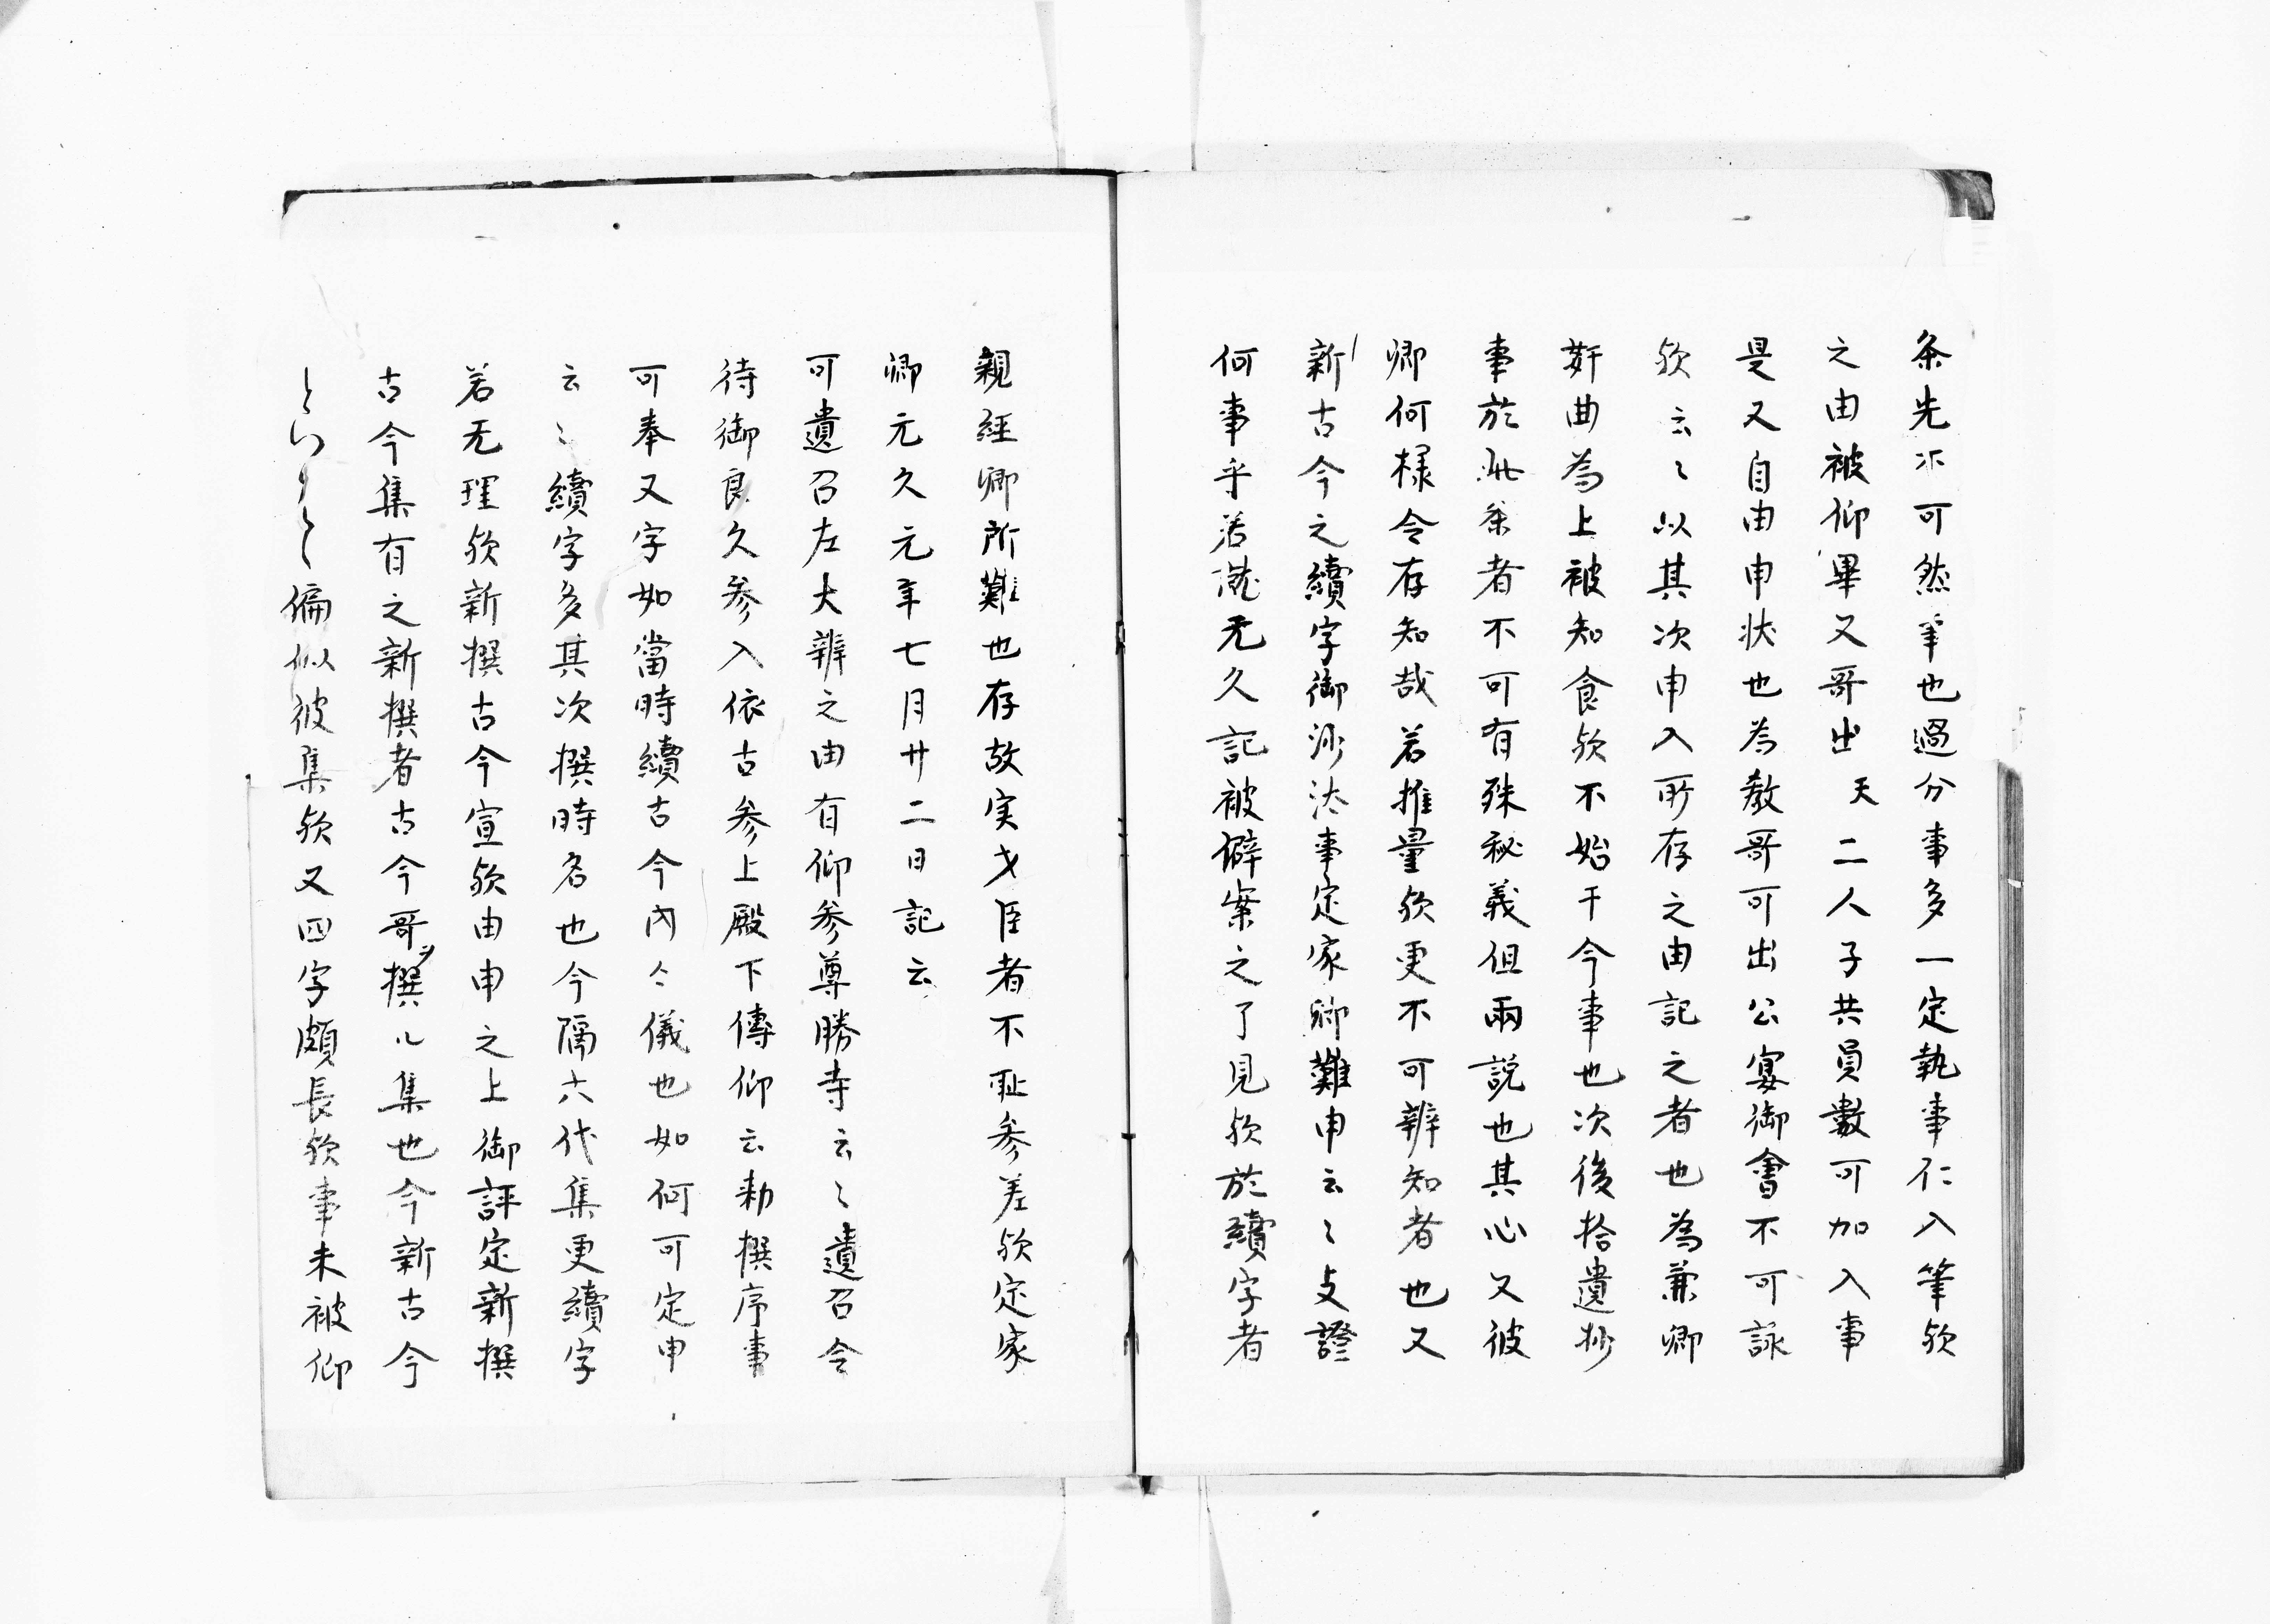 条先不可然筆也過分事多一定執事仁入筆欤
之由被仰畢又哥出天二人子共員數可加入事
是又自由申状也為教哥可出公宴御會不可詠
欤云々以其次申入所存之由記之者也為兼卿
姧曲為上被知食欤不始于今事也次後拾遺抄
事於此条者不可有殊秘義但兩説也其心又彼
卿何樣令存知哉若推量欤更不可辨知者也又
新古今之續字御沙汰事定家卿難申云々支證
何事乎若謐无久記被僻案之了見欤於續字者
親經卿所難也存故実才臣者不耻参差欤定家
卿元久元年七月廿二日記云
可遺召左大辨之由有仰参尊勝寺云々遺召令
待御良久参入依古参上殿下傳仰云勅撰序事
可奉又字如當時續古今内々儀也如何可定申
云々續字多其次撰時名也今隔六代集更續字
若无理欤新撰古今宣欤由申之上御評定新撰
古今集有之新撰者古今哥ヲ撰ル集也今新古今
偏似彼集欤又四字頗長欤事未被仰